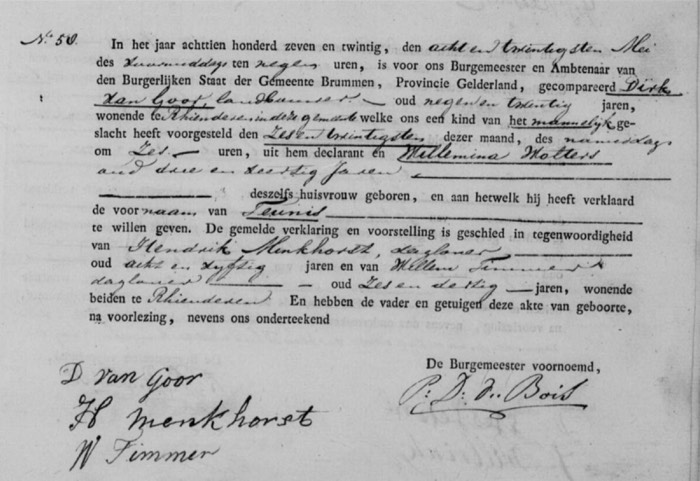 N.º 50.
In het jaar achttien honderd zeven en twintig, den acht en twintigsten Mei
des voormiddags ten negen uren, is voor ons Burgemeester en Ambtenaar van
den Burgerlijken Staat der Gemeente Brummen, Provincie Gelderland, gecompareerd Dirk
van Goor, landbouwer oud negen en twintig jaren,
wonende te Rhienderen in deze gemeente welke ons een kind van het mannelyk ge-
slacht heeft voorgesteld den Zes en twintigsten dezer maand, des namiddags
om Zes uren, uit hem declarant en Willemina Wolters
oud drie en Jaren,
deszelfs huisvrouw geboren, en aan hetwelk hij heeft verklaard
de voornaam van Teunis
te willen geven. De gemelde verklaring en voorstelling is geschied in tegenwoordigheid
van Hendrik Menkhorst, daglooner
oud acht en vyftig jaren en van Willem Timmer
daglooner oud Zes en dertig jaren, wonende
beiden te Rhienderen. En hebben de vader en getuigen deze akte van geboorte,
na voorlezing, nevens ons onderteekend
De Burgemeester voornoemd,
D van Goor
P: D: du Bois
H menkhorst
W Timmer